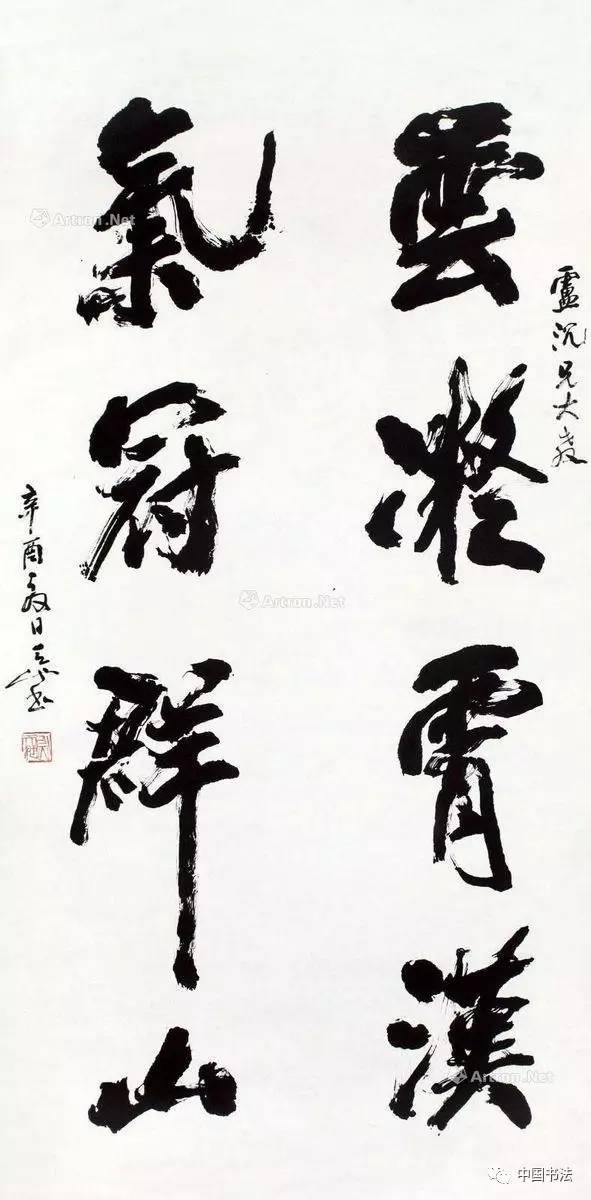 盧沉兄大教
雲凝霄漢
氣冠群山
辛酉夏日書
Artron.Net
Artron.Net
Artron.Net
中国书法